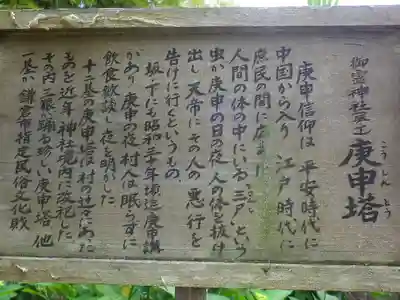 御霊神社
庚申塔
こうしん とう
庚申信仰は 平安時代に
中国から入り 江戸時代に
庶民の間に
人間の体の中にいる 三尸という
虫が庚申の日の夜 人の体を抜け
出し 天帝にその人の悪行を
告げに行くというもの、
坂ノ下にも昭和三十年頃迄庚申講
があり 庚申の夜 村人は眠らずに
飲食歓談し夜を明かした
十二基の庚申塔は村の辻々にあった
ものを近年 神社境内に改祀した
その内 三猿が踊る珍しい庚申塔 他
一基が鎌倉市指定民俗文化財